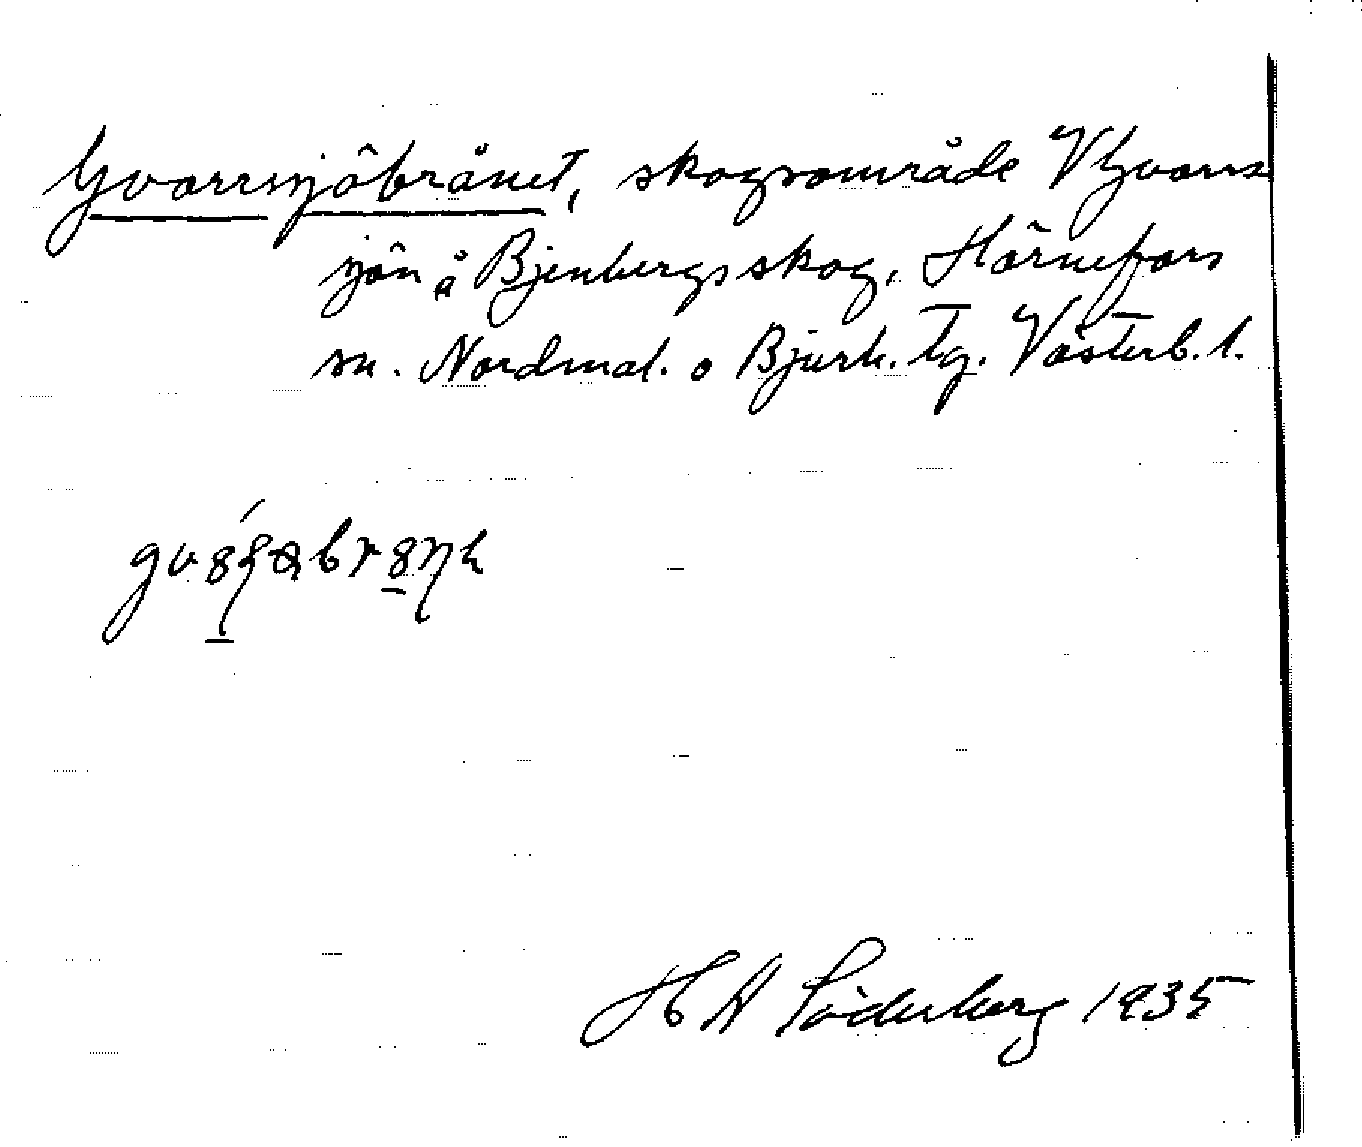 Gvarrsjöbrånet, skogsområde V Gvarrs
sjön å Bjenbergsskog, Hörnefors
sn. Nordmal. o Bjurh. tg. Västerb. l.
H A Söderberg 1935